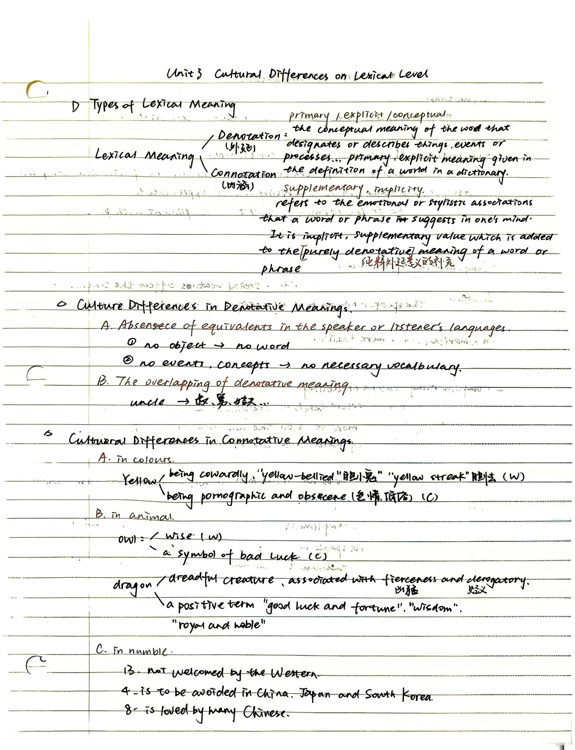 Unit 3 Cultural Differences on Lexical Level
1) Types of Lexical Meaning
primary, explicit / conceptual
Lexical Meaning
Denotation: the conceptual meaning of the word that
(外延) designates or describes things, events or
processes... primary, explicit meaning given in
Connotation the definition of a world in a dictionary.
(内涵) supplementary, implicity.
refers to the emotional or stylistic associations
that a word or phrase suggests in one's mind.
It is implicit, supplementary value which is added
to the [purely denotative] meaning of a word or
phrase
Culture Differences in Denotative Meanings.
A. Absensece of equivalents in the speaker or listener's languages.
① no object → no word
② no events, concepts → no necessary vocalbulary.
B. The overlapping of denotative meaning
uncle → 叔、舅、姑丈...
Cultureral Differences in Connotative Meanings.
A. in colours.
Yellow being cowardly, "yellow-bellied" 胆小鬼" "yellow streak" 胆怯 (W)
being pornographic and obscene (色情、) (C)
B. in animal.
owl: wise (W)
a symbol of bad luck (C)
dragon dreadful creature, associated with fierceness and derogatory.
凶猛 贬义
a positive term "good luck and fortune". "wisdom".
"royal and noble"
C. in numble.
13. not welcomed by the Western.
4 - is to be avoided in China, Japan and South Korea
8 - is loved by many Chinese.